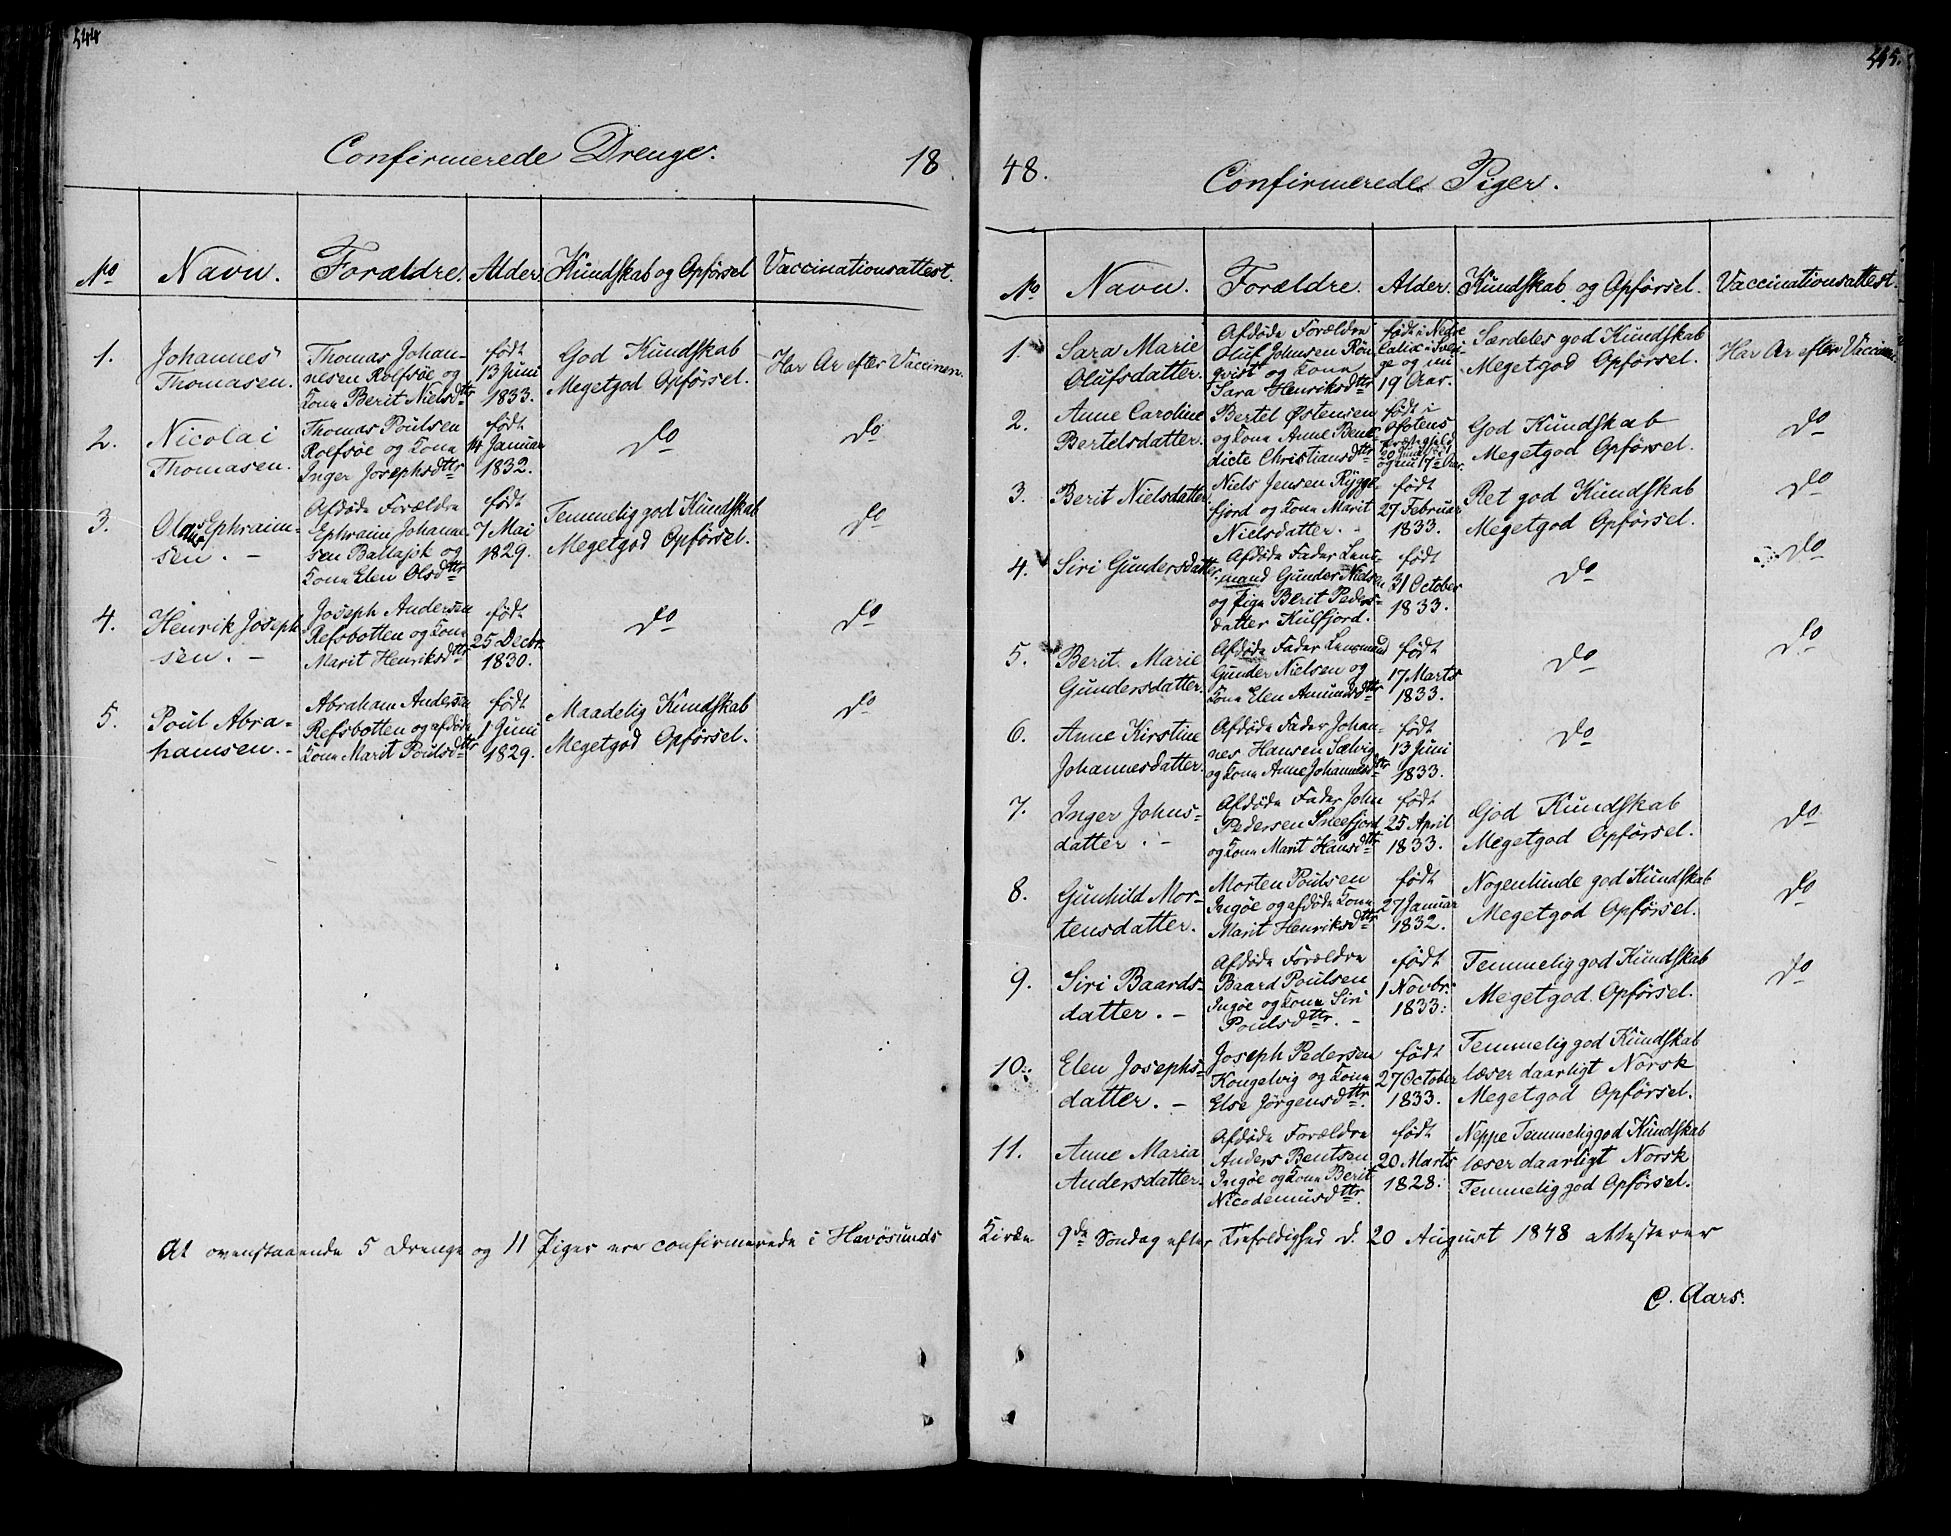 544
Confirmerede Drenge.
18
No
Navn.
Forældre.
Alder.
Kundskab og Opførsel
Vaccinationsattest.
1.
Johannes
Thomasen.
Thomas Johan-
nesen Rolfsøe og
Kone Berit Nielsdttr
født
13 Juni
1833.
God Kundskab
Megetgod Opførsel.
Har Ar efter Vaccinen.
2.
Nicolai
Thomasen.
Thomas Poulsen
Rolfsøe og Kone
Inger Josephsdttr
født
14 Januar
1832.
do
do
3.
Ephraim-
sen. -
Afdøde Forældre
Ephraim Johanne-
sen Ballajik og
Kone Elen Olsdttr
født
7 Mai
1829.
Temmelig god Kundskab
Megetgod Opførsel.
do
4.
Henrik Joseph
sen. -
Joseph Andersen
Refsbotten og Kone
Marit Henriksdttr
født
25 Decbr.
1830.
do
do
5.
Poul Abra-
hamsen. -
Abraham Andersen
Refsbotten og afdøde
Kone Marit Poulsdttr
født
1 Juni
1829.
Maadelig Kundskab
Megetgod Opførsel.
do
At ovenstaaende 5 Drenge og 11 Piger ere confirmerede i Havösunds
545.
48.
Confirmerede Piger.
No
Navn.
Forældre.
Alder.
Kundskab og Opførsel.
Vaccinationsattest.
1.
Sara Marie
Olufsdatter.
Afdøde Forældre
Oluf Johnsen Rön
qvist og Kone
Sara Henriksdttr
født i Nedre
Calix i Sveri-
ge og nu
19 Aar.
Særdeles god Kundskab
Megetgod Opførsel.
Har Ar efter Vaccinen
2.
Anne Caroline
Bertelsdatter.
Bertel Østensen
og Kone Anne Bene-
dicte Christiansdttr
født i
Ofotens
Præstegjeld
og nu 17 Aar.
God Kundskab
Megetgod Opførsel.
do
3.
Berit Nielsdatter.
Niels Jensen Rygge
fjord og Kone Marit
Nielsdatter. -
født
27 Februar
1833.
Ret god Kundskab
Megetgod Opførsel.
do
4.
Siri Gundersdatter.
Afdøde Fader Lens-
mand Gunder Nielsen
og Pige Berit Peders-
datter Kulfjord.
født
31 October
1833.
do
do
5.
Berit Marie
Gundersdatter.
Afdøde Fader Lensmand
Gunder Nielsen og
Kone Elen Amundsdttr
født
17 Marts
1833.
do
do
6.
Anne Kirstine
Johannesdatter.
Afdøde Fader Johan-
nes Hansen Sælvig
og Kone Anne Johannesdttr
født
13 Juni
1833.
do
7.
Inger Johns-
datter. -
Afdøde Fader John
Pedersen Sneefjord
og Kone Marit Hansdttr
født
25 April
1833.
God Kundskab
Megetgod Opførsel.
do
8.
Gunhild Mor-
tensdatter.
Morten Poulsen
Ingöe og afdøde Kone
Marit Henriksdttr
født
27 Januar
1832.
Nogenlunde god Kundskab
Megetgod Opførsel.
do
9.
Siri Baards-
datter. -
Afdøde Forældre
Baard Poulsen
Ingöe og Kone Siri
Poulsdttr. -
født
1 Novbr.
1833.
Temmelig god Kundskab
Megetgod Opførsel.
do
10.
Elen Josephs-
datter. -
Joseph Pedersen
Kongelvig og Kone
Else Jørgensdttr.
født
27 October
1833.
Temmelig god Kundskab
læser daarligt Norsk
Megetgod Opførsel.
11.
Anne Maria
Andersdatter.
Afdøde Forældre
Anders Bentsen
Ingöe og Kone Berit
Nicodemusdttr.
født
20 Marts
1828.
Neppe Temmelig god Kundskab
læser daarligt Norsk
Temmelig god Opførsel.
Kirke 9de Søndag efter Trefoldighed d. 20 August 1848 attesterer
C. Aars.